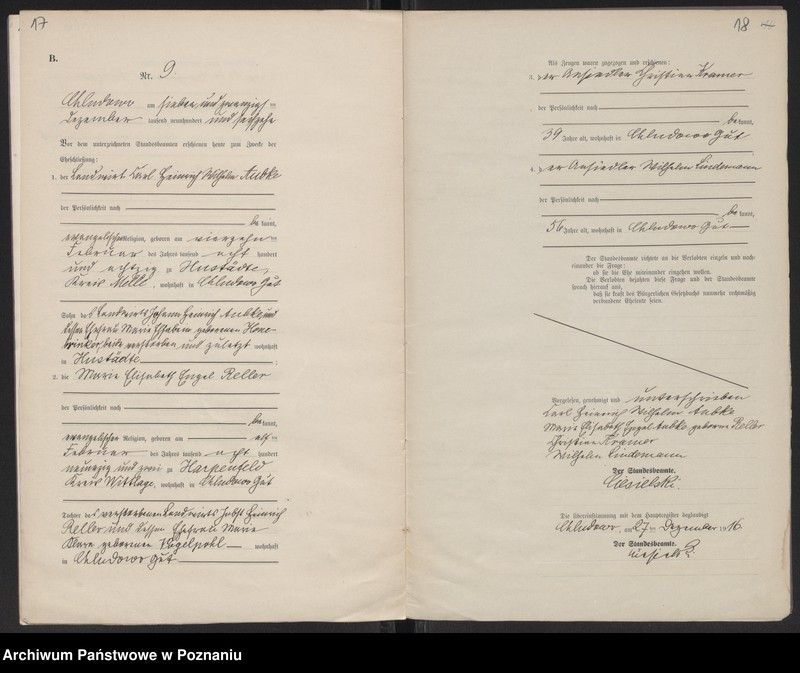 17
B.
Nr. 9.
Chludowo am sieben und zwanzigsten
Dezember tausend neunhundert und sechzehn
Vor dem unterzeichneten Standesbeamten erschienen heute zum Zwecke der
Eheschließung:
1. der Landwirt Karl Heinrich Wilhelm Aubke
der Persönlichkeit nach
be kannt,
evangelischer Religion, geboren am vierzehn ten
Februar des Jahres tausend acht hundert
und achtzig zu Hustädte,
Kreis Melle, wohnhaft in Chludowo Gut
Sohn des Landwirts Johann Heinrich Aubke und
dessen Ehefrau Marie Elsabein geborenen
beide verstorben und zuletzt wohnhaft
in Hustädte ;
2. die Marie Elisabeth Engel Reller
der Persönlichkeit nach
be kannt,
evangelischer Religion, geboren am elf ten
Februar des Jahres tausend acht hundert
neunzig und zwei zu Harpenfeld
Kreis Wittlage, wohnhaft in Chludowo Gut
Tochter des verstorbenen Landwirts Jobst Heinrich
Reller und dessen Ehefrau Marie
Klara geborenen Vogelpohl wohnhaft
in Chludowo Gut
18
Als Zeugen waren zugezogen und erschienen:
3. der Ansiedler Christian Kramer
der Persönlichkeit nach
be kannt,
39 Jahre alt, wohnhaft in Chludowo Gut
4. der Ansiedler Wilhelm Lindemann
der Persönlichkeit nach
be kannt,
56 Jahre alt, wohnhaft in Chludowo Gut
Der Standesbeamte richtete an die Verlobten einzeln und nach-
einander die Frage:
ob sie die Ehe miteinander eingehen wollen.
Die Verlobten bejahten diese Frage und der Standesbeamte
sprach hierauf aus,
daß sie kraft des Bürgerlichen Gesetzbuchs nunmehr rechtmäßig
verbundene Eheleute seien.
Vorgelesen, genehmigt und unterschrieben
Karl Heinrich Wilhelm Aubke
Marie Elisabeth Engel Aubke geborne Reller
Christian Kramer
Wilhelm Lindemann
Der Standesbeamte.
Ciesielski.
Die Übereinstimmung mit dem Hauptregister beglaubigt
Chludowo, am 27 ten Dezember 1916
Der Standesbeamte.
Ciesielski
Archiwum Państwowe w Poznaniu